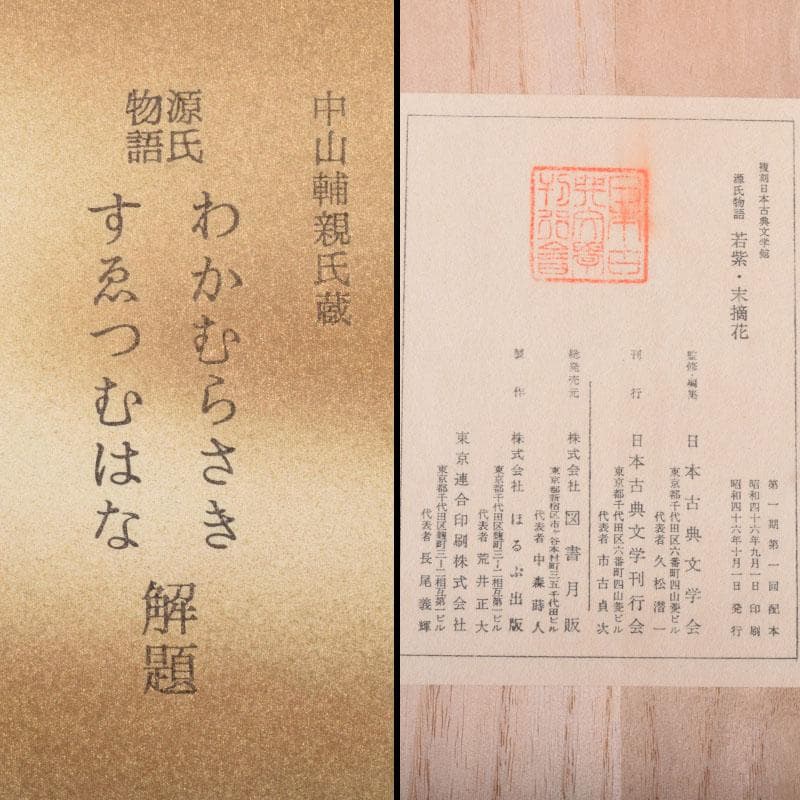 中山輔親氏蔵
源氏
物語
わかむらさき
すゑつむはな
解題
複刻日本古典文学館
源氏物語 若紫・末摘花
第一期第一回配本
昭和四十六年九月一日 印刷
昭和四十六年十月一日 発行
監修・編集 日本古典文学会
東京都千代田区六番町四山菱ビル
代表者 久松潜一
刊行 日本古典文学刊行会
東京都千代田区六番町四山菱ビル
代表者 市古貞次
総発売元 株式会社 図書月販
東京都新宿区市ヶ谷本村町三五千代田ビル
代表者 中森蒔人
製作 株式会社 ほるぷ出版
東京都千代田区麹町三ノ二相互第一ビル
代表者 荒井正大
東京連合印刷株式会社
東京都千代田区麹町三ノ二相互第一ビル
代表者 長尾義輝
日本古
典文学
刊行会